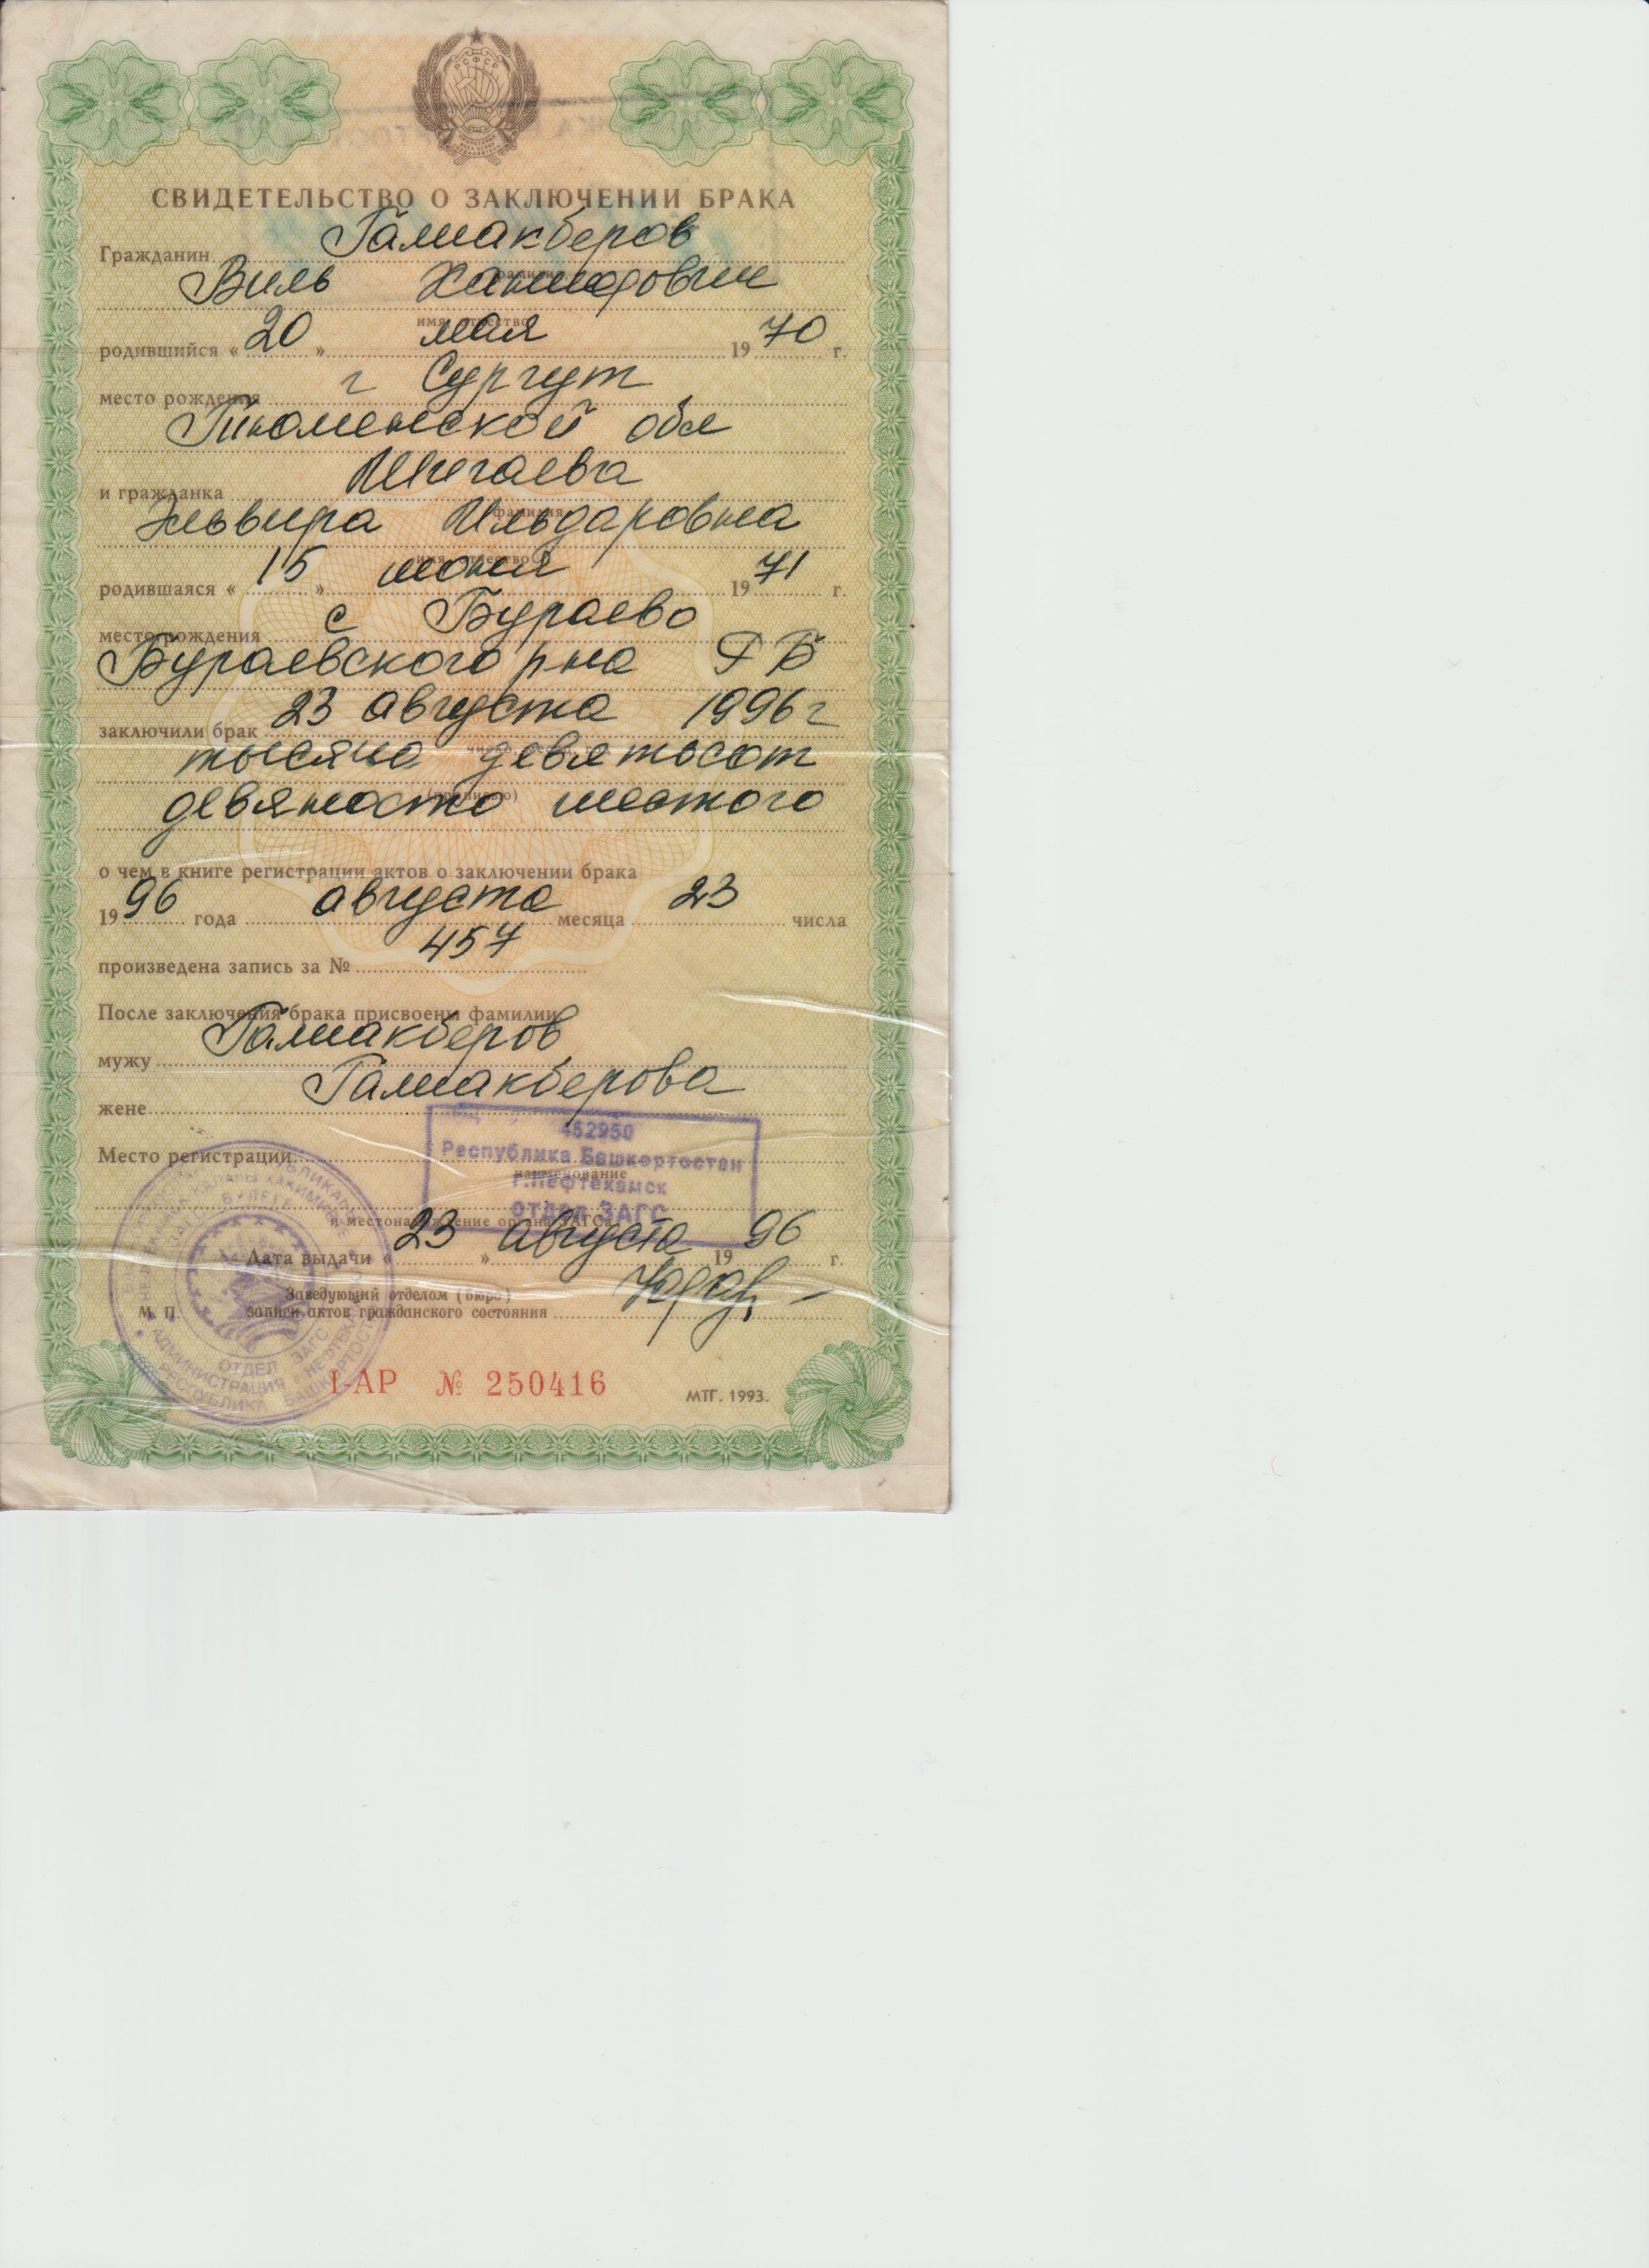 РСФСР
СВИДЕТЕЛЬСТВО О ЗАКЛЮЧЕНИИ БРАКА
Гражданин Галиакберов
фамилия
Виль Хамитович
имя, отчество
родившийся « 20 » мая 19 70 г.
место рождения г Сургут
Тюменской обл
и гражданка Шигаева
фамилия
Эльвира Ильдаровна
имя, отчество
родившаяся « 15 » июня 19 71 г.
место рождения с Бураево
Бураевского р на РБ
заключили брак 23 августа 1996 г
тысяча девятьсот
(прописью)
девяносто шестого
о чем в книге регистрации актов о заключении брака
19 96 года августа месяца 23 числа
произведена запись за № 457
После заключения брака присвоены фамилии
мужу Галиакберов
жене Галиакберова
452950
Место регистрации Республика Башкортостан
наименование
г. Нефтекамск
ОТДЕЛ ЗАГС
и местонахождение органа ЗАГСа
Дата выдачи « 23 » августа 19 96 г.
Заведующий отделом (бюро)
М. П. записи актов гражданского состояния
ОТДЕЛ ЗАГС
АДМИНИСТРАЦИЯ г. НЕФТЕКАМСК
РЕСПУБЛИКА БАШКОРТОСТАН
I-АР № 250416
МТГ. 1993.